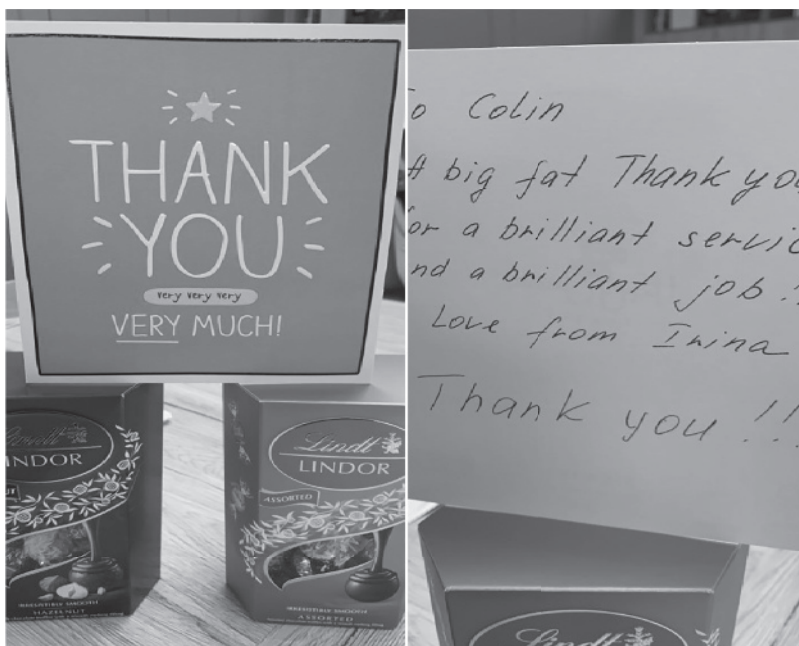 THANK
YOU
very very very
VERY MUCH!
Lindt
INDOR
HAZELNUT
IRRESISTIBLE SMOOTH
Lindt
LINDOR
ASSORTED
IRRESISTIBLE SMOOTH
ASSORTED
o Colin
A big fat Thank you
or a brilliant servic
nd a brilliant job!!
Love from Irina
Thank you!!!
Lindt